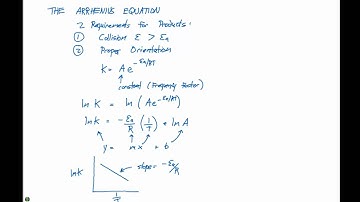 THE ARRHENIUS EQUATION
2 Requirements for Products:
① Collision E > Ea
② Proper Orientation
K = Ae^-Ea/RT
constant (Frequency Factor)
ln K = ln (Ae^-Ea/RT)
ln K = -Ea/R (1/T) + ln A
y = mx + b
lnK
slope = -Ea/R
1/T